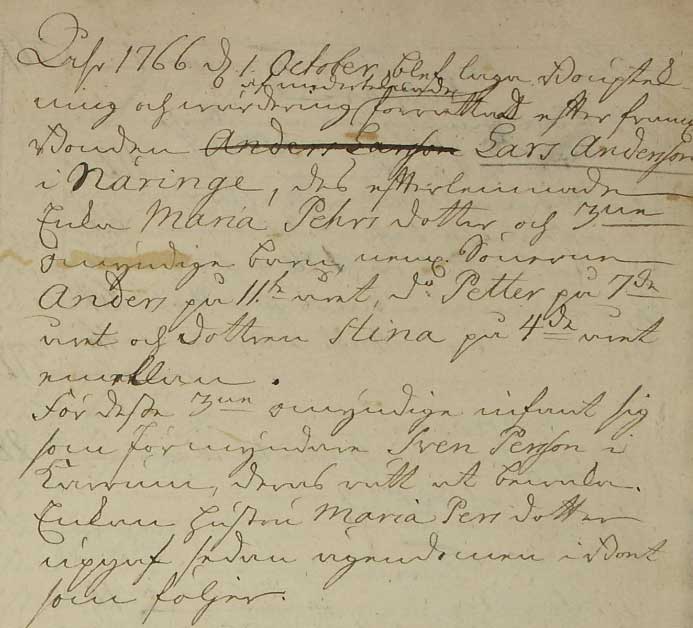 Åhr 1766 d 1. October, blef laga Bouptek-
af undertecknade
ning och wärdering förrättad efter fram:
Bonden Anders Larsson Lars Andersson
i Näringe, des efterlemnade
Enka Maria Pehrs dotter och 3ne
omyndige barn, nempl. Sönerne
Anders på 11.te året, do Petter på 7de
året och dottren Stina på 4de året
emellan.
För desse 3ne omyndige infant sig
som förmyndare Sven Persson i
deras rätt at bewaka.
Enkan hustru Maria Pers dotter
upgaf sedan ägendomen i Boet
som följer.